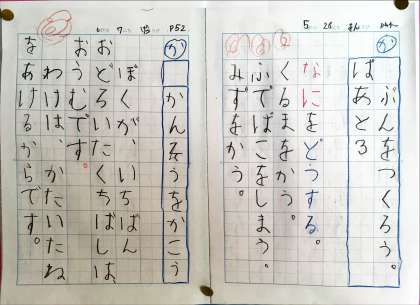 か ぶんをつくろう。
なにをどうする。
くるまをかう。
ふでばこをしまう。
みずをかう。
P52
か かんそうをかこう
ぼくが、いちばん
おどろいた、くちばしは、
おうむです。
わけは、かたいたね
をあけるからです。